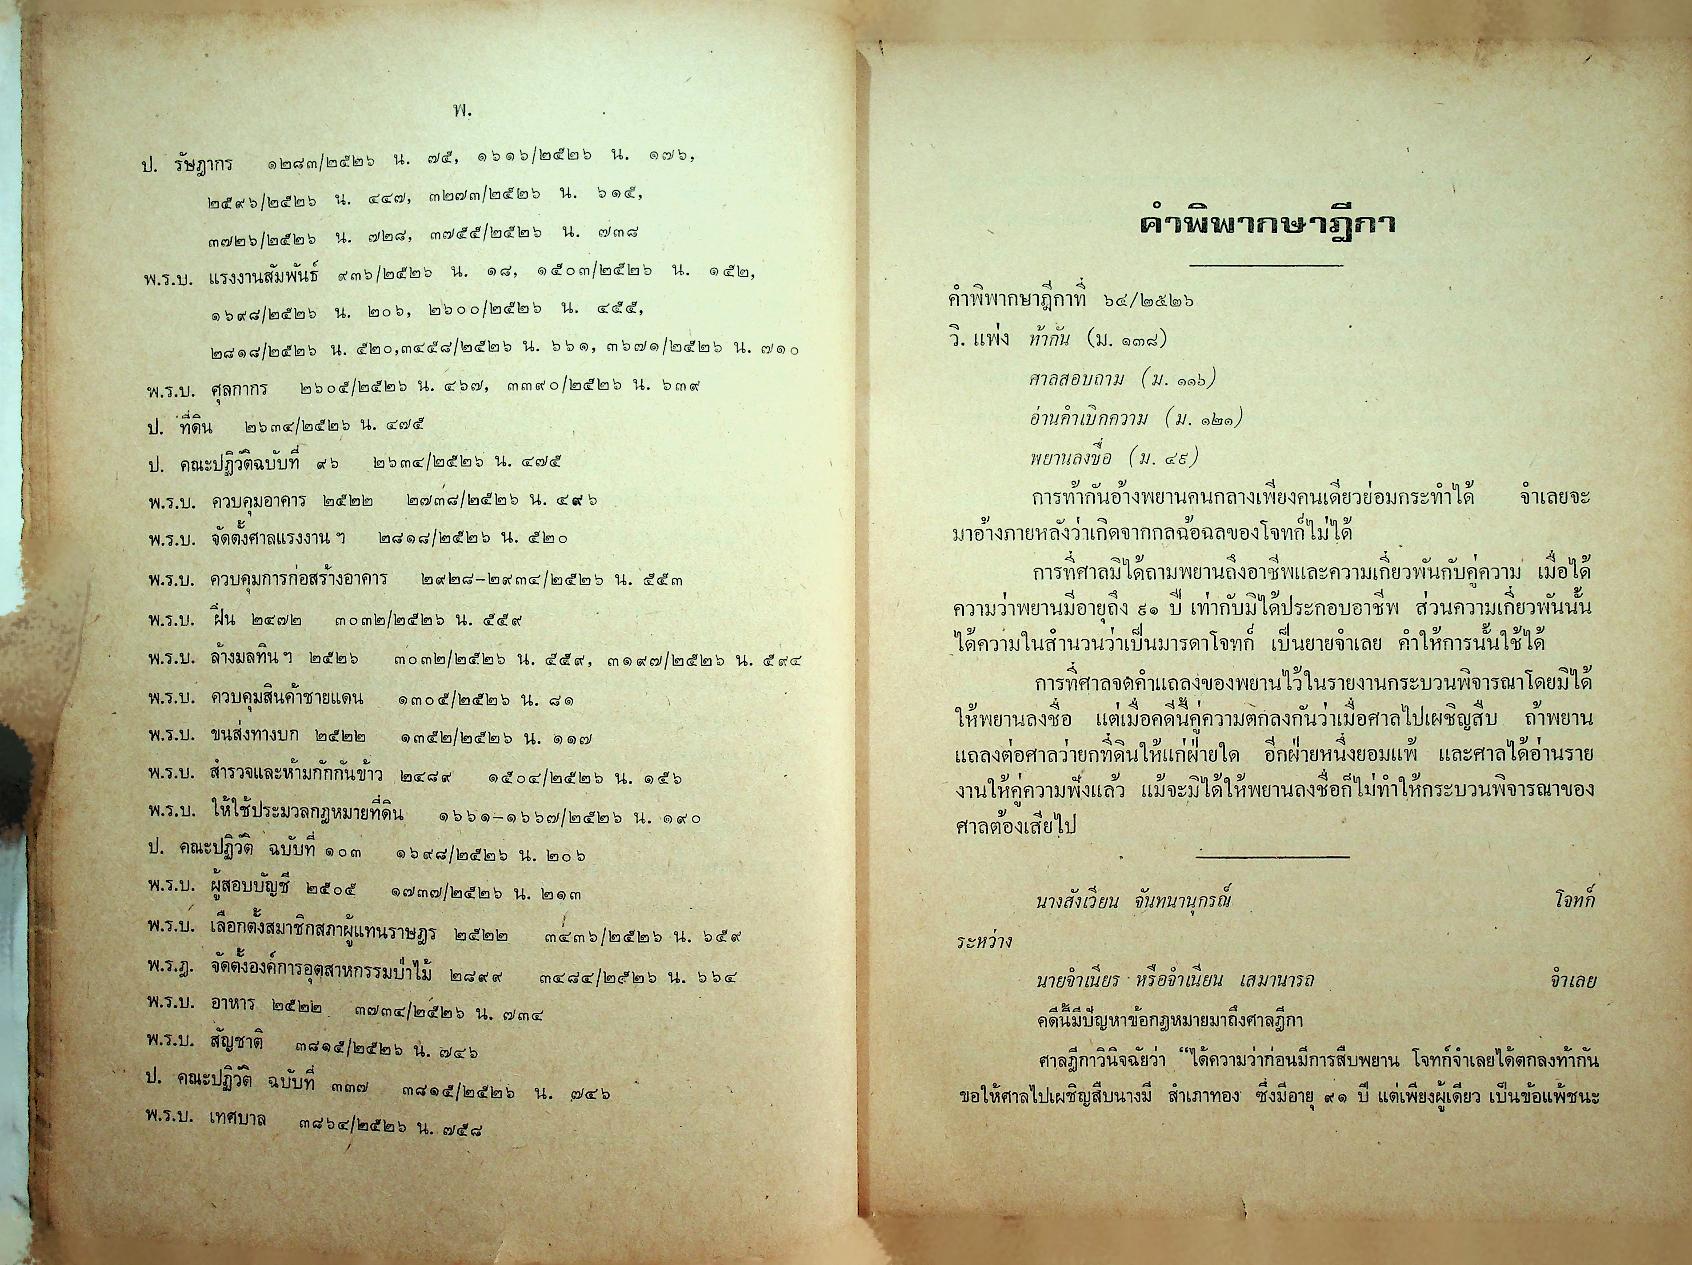 พ.
ป. รัษฎากร ๑๒๘๓/๒๕๒๖ น. ๗๕, ๑๖๑๖/๒๕๒๖ น. ๑๗๖,
๒๕๙๖/๒๕๒๖ น. ๔๔๗, ๓๒๗๓/๒๕๒๖ น. ๖๑๕,
๓๗๒๖/๒๕๒๖ น. ๗๒๘, ๓๗๕๕/๒๕๒๖ น. ๗๓๘
พ.ร.บ. แรงงานสัมพันธ์ ๙๓๖/๒๕๒๖ น. ๑๘, ๑๕๐๓/๒๕๒๖ น. ๑๕๒,
๑๖๙๘/๒๕๒๖ น. ๒๐๖, ๒๖๐๐/๒๕๒๖ น. ๔๕๕,
๒๘๑๘/๒๕๒๖ น. ๕๒๐,๓๔๕๘/๒๕๒๖ น. ๖๖๑, ๓๖๗๑/๒๕๒๖ น. ๗๑๐
พ.ร.บ. ศุลกากร ๒๖๐๕/๒๕๒๖ น. ๔๖๗, ๓๓๙๐/๒๕๒๖ น. ๖๓๙
ป. ที่ดิน ๒๖๓๔/๒๕๒๖ น. ๔๗๕
ป. คณะปฏิวัติฉบับที่ ๙๖ ๒๖๓๔/๒๕๒๖ น. ๔๗๕
พ.ร.บ. ควบคุมอาคาร ๒๕๒๒ ๒๗๓๘/๒๕๒๖ น. ๔๙๖
พ.ร.บ. จัดตั้งศาลแรงงาน ฯ ๒๘๑๘/๒๕๒๖ น. ๕๒๐
พ.ร.บ. ควบคุมการก่อสร้างอาคาร ๒๙๒๘-๒๙๓๔/๒๕๒๖ น. ๕๕๓
พ.ร.บ. ฝิ่น ๒๔๗๒ ๓๐๓๒/๒๕๒๖ น. ๕๕๙
พ.ร.บ. ล้างมลทิน ฯ ๒๕๒๖ ๓๐๓๒/๒๕๒๖ น. ๕๕๙, ๓๑๙๗/๒๕๒๖ น. ๕๙๔
พ.ร.บ. ควบคุมสินค้าชายแดน ๑๓๐๕/๒๕๒๖ น. ๘๑
พ.ร.บ. ขนส่งทางบก ๒๕๒๒ ๑๓๕๒/๒๕๒๖ น. ๑๑๗
พ.ร.บ. สำรวจและห้ามกักกันข้าว ๒๔๘๙ ๑๕๐๔/๒๕๒๖ น. ๑๕๖
พ.ร.บ. ให้ใช้ประมวลกฎหมายที่ดิน ๑๖๖๑-๑๖๖๗/๒๕๒๖ น. ๑๙๐
ป. คณะปฏิวัติ ฉบับที่ ๑๐๓ ๑๖๙๘/๒๕๒๖ น. ๒๐๖
พ.ร.บ. ผู้สอบบัญชี ๒๕๐๕ ๑๗๓๗/๒๕๒๖ น. ๒๑๓
พ.ร.บ. เลือกตั้งสมาชิกสภาผู้แทนราษฎร ๒๕๒๒ ๓๔๓๖/๒๕๒๖ น. ๖๕๙
พ.ร.ฎ. จัดตั้งองค์การอุตสาหกรรมป่าไม้ ๒๔๙๙ ๓๔๘๔/๒๕๒๖ น. ๖๖๔
พ.ร.บ. อาหาร ๒๕๒๒ ๓๗๓๔/๒๕๒๖ น. ๗๓๔
พ.ร.บ. สัญชาติ ๓๘๑๕/๒๕๒๖ น. ๗๔๖
ป. คณะปฏิวัติ ฉบับที่ ๓๓๗ ๓๘๑๕/๒๕๒๖ น. ๗๔๖
พ.ร.บ. เทศบาล ๓๘๖๔/๒๕๒๖ น. ๗๕๘
คำพิพากษาฎีกา
คำพิพากษาฎีกาที่ ๖๔/๒๕๒๖
วิ. แพ่ง ท้ากัน (ม. ๑๓๘)
ศาลสอบถาม (ม. ๑๑๖)
อ่านคำเบิกความ (ม. ๑๒๑)
พยานลงชื่อ (ม. ๔๙)
การท้ากันอ้างพยานคนกลางเพียงคนเดียวย่อมกระทำได้ จำเลยจะ
มาอ้างภายหลังว่าเกิดจากกลฉ้อฉลของโจทก์ไม่ได้
การที่ศาลมิได้ถามพยานถึงอาชีพและความเกี่ยวพันกับคู่ความ เมื่อได้
ความว่าพยานมีอายุถึง ๙๑ ปี เท่ากับมิได้ประกอบอาชีพ ส่วนความเกี่ยวพันนั้น
ได้ความในสำนวนว่าเป็นมารดาโจทก์ เป็นยายจำเลย คำให้การนั้นใช้ได้
การที่ศาลจดคำแถลงของพยานไว้ในรายงานกระบวนพิจารณาโดยมิได้
ให้พยานลงชื่อ แต่เมื่อคดีนี้คู่ความตกลงกันว่าเมื่อศาลไปเผชิญสืบ ถ้าพยาน
แถลงต่อศาลว่ายกที่ดินให้แก่ฝ่ายใด อีกฝ่ายหนึ่งยอมแพ้ และศาลได้อ่านราย
งานให้คู่ความฟังแล้ว แม้จะมิได้ให้พยานลงชื่อก็ไม่ทำให้กระบวนพิจารณาของ
ศาลต้องเสียไป
นางสังเวียน จันทนานุกรณ์ โจทก์
ระหว่าง
นายจำเนียร หรือจำเนียน เสมานารถ จำเลย
คดีนี้มีปัญหาข้อกฎหมายมาถึงศาลฎีกา
ศาลฎีกาวินิจฉัยว่า “ได้ความว่าก่อนมีการสืบพยาน โจทก์จำเลยได้ตกลงท้ากัน
ขอให้ศาลไปเผชิญสืบนางมี สำเภาทอง ซึ่งมีอายุ ๙๑ ปี แต่เพียงผู้เดียว เป็นข้อแพ้ชนะ